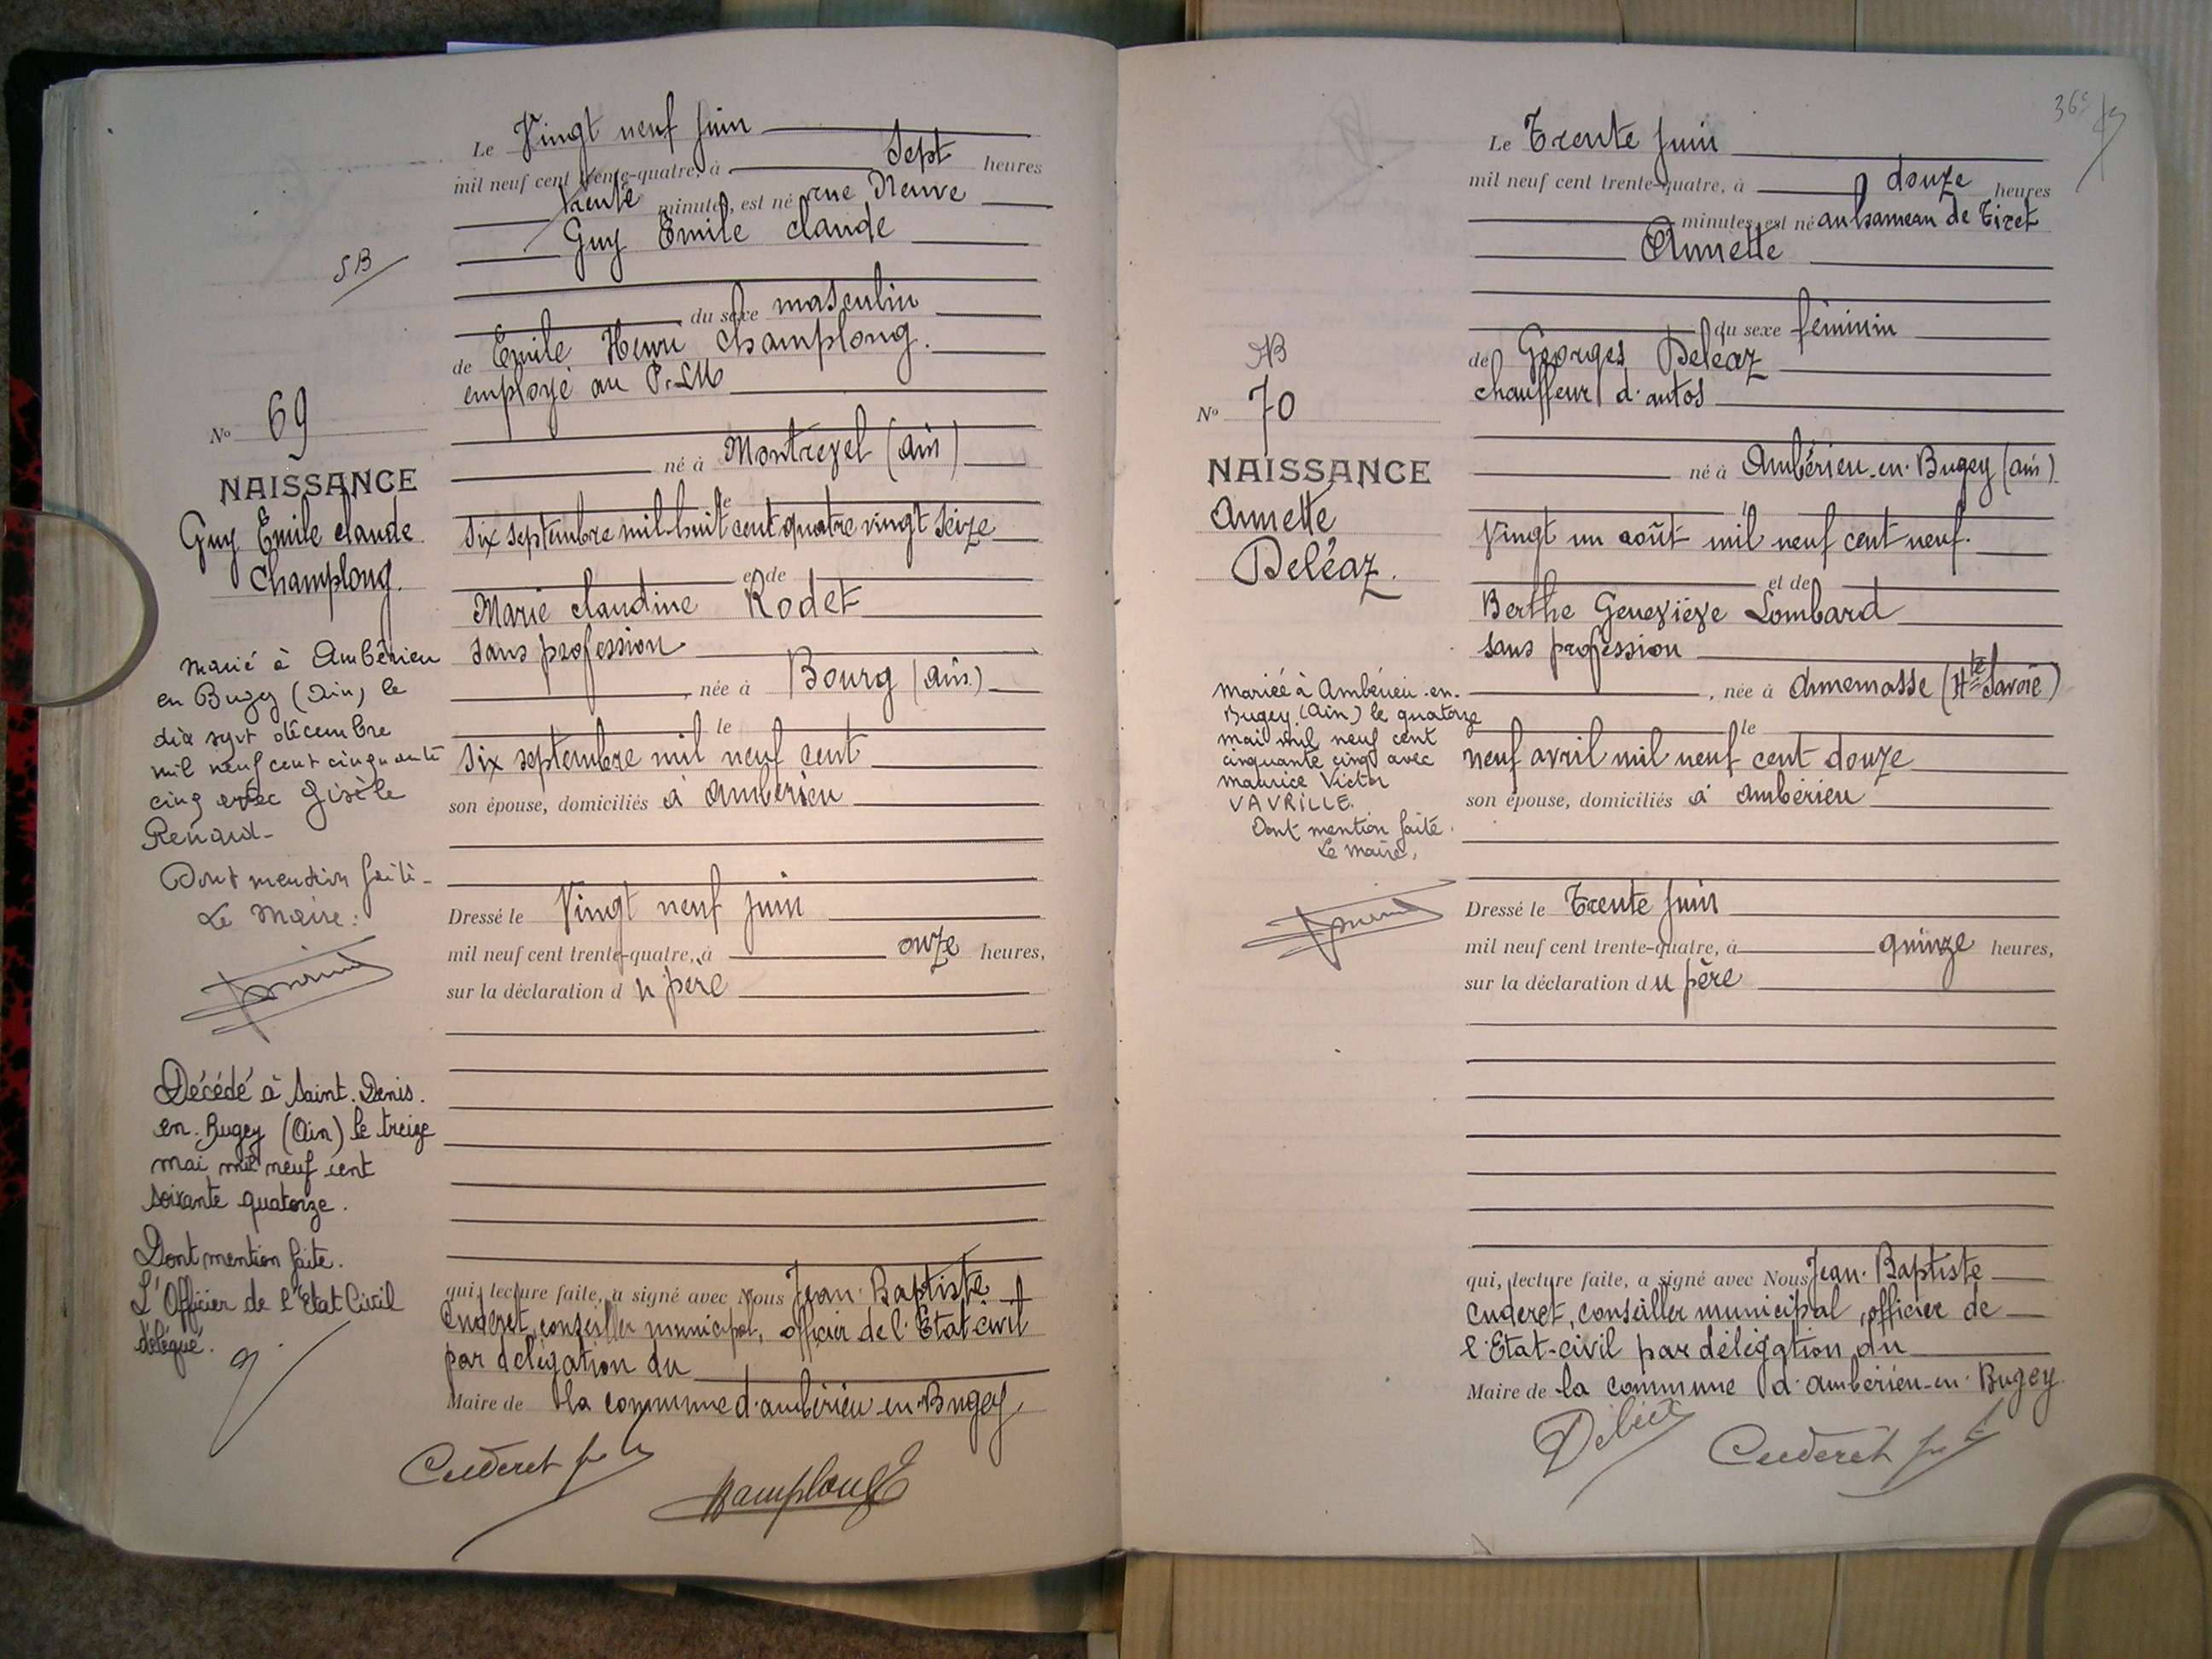 SB
N° 69
NAISSANCE
Guy Emile Claude
Champlong.
marié à Ambérieu
en Bugey (Ain) le
dix sept décembre
mil neuf cent cinquante
cinq avec Gisèle
Renard-
Dont mention faite-
Le Maire:
Décédé à Saint. Denis.
en. Bugey (Ain) le treize
mai mil neuf cent
soixante quatorze.
Dont mention faite.
L'Officier de l'Etat Civil
délégué.
Le Vingt neuf juin
mil neuf cent trente-quatre, à Sept heures
trente minutes, est né rue Neuve
Guy Emile Claude
du sexe masculin
de Emile Henri Champlong.
employé au P.LM
né à Montrevel (ain)
le
six septembre mil-huit cent quatre vingt seize
et de
Marie Claudine Rodet
sans profession
, née à Bourg (ain)
le
six septembre mil neuf cent
son épouse, domiciliés à Ambérieu
Dressé le Vingt neuf juin
mil neuf cent trente-quatre, à onze heures,
sur la déclaration du père
qui, lecture faite, a signé avec Nous Jean. Baptiste
Cuderet, conseiller municipal, officier de l'Etat-civil
par délégation du
Maire de la commune d'ambérieu-en-Bugey
Cuderet
Champlong
36e
NB
N° 70
NAISSANCE
Annette
Deléaz.
mariée à Ambérieu-en-
Bugey (Ain) le quatorze
mai mil neuf cent
cinquante cinq avec
Maurice Victor
VAVRILLE.
Dont mention faite.
Le Maire,
Le Trente juin
mil neuf cent trente-quatre, à douze heures
minutes, est né au hameau de Tiret
Annette
du sexe féminin
de Georges Deléaz
chauffeur d'autos
né à Ambérieu-en-Bugey (ain)
le
Vingt un août mil neuf cent neuf.
et de
Berthe Geneviève Lombard
sans profession
, née à Annemasse (Hte Savoie)
le
neuf avril mil neuf cent douze
son épouse, domiciliés à Ambérieu
Dressé le Trente juin
mil neuf cent trente-quatre, à quinze heures,
sur la déclaration du père
qui, lecture faite, a signé avec Nous Jean. Baptiste
Cuderet, conseiller municipal, officier de
l'Etat-civil par délégation du
Maire de la commune d'ambérieu-en-Bugey
Cuderet